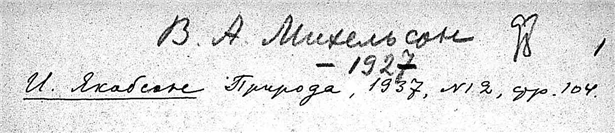 В. А. Михельсон
– 1927
И. Якабсонъ Природа, 1937, №12, стр. 104.